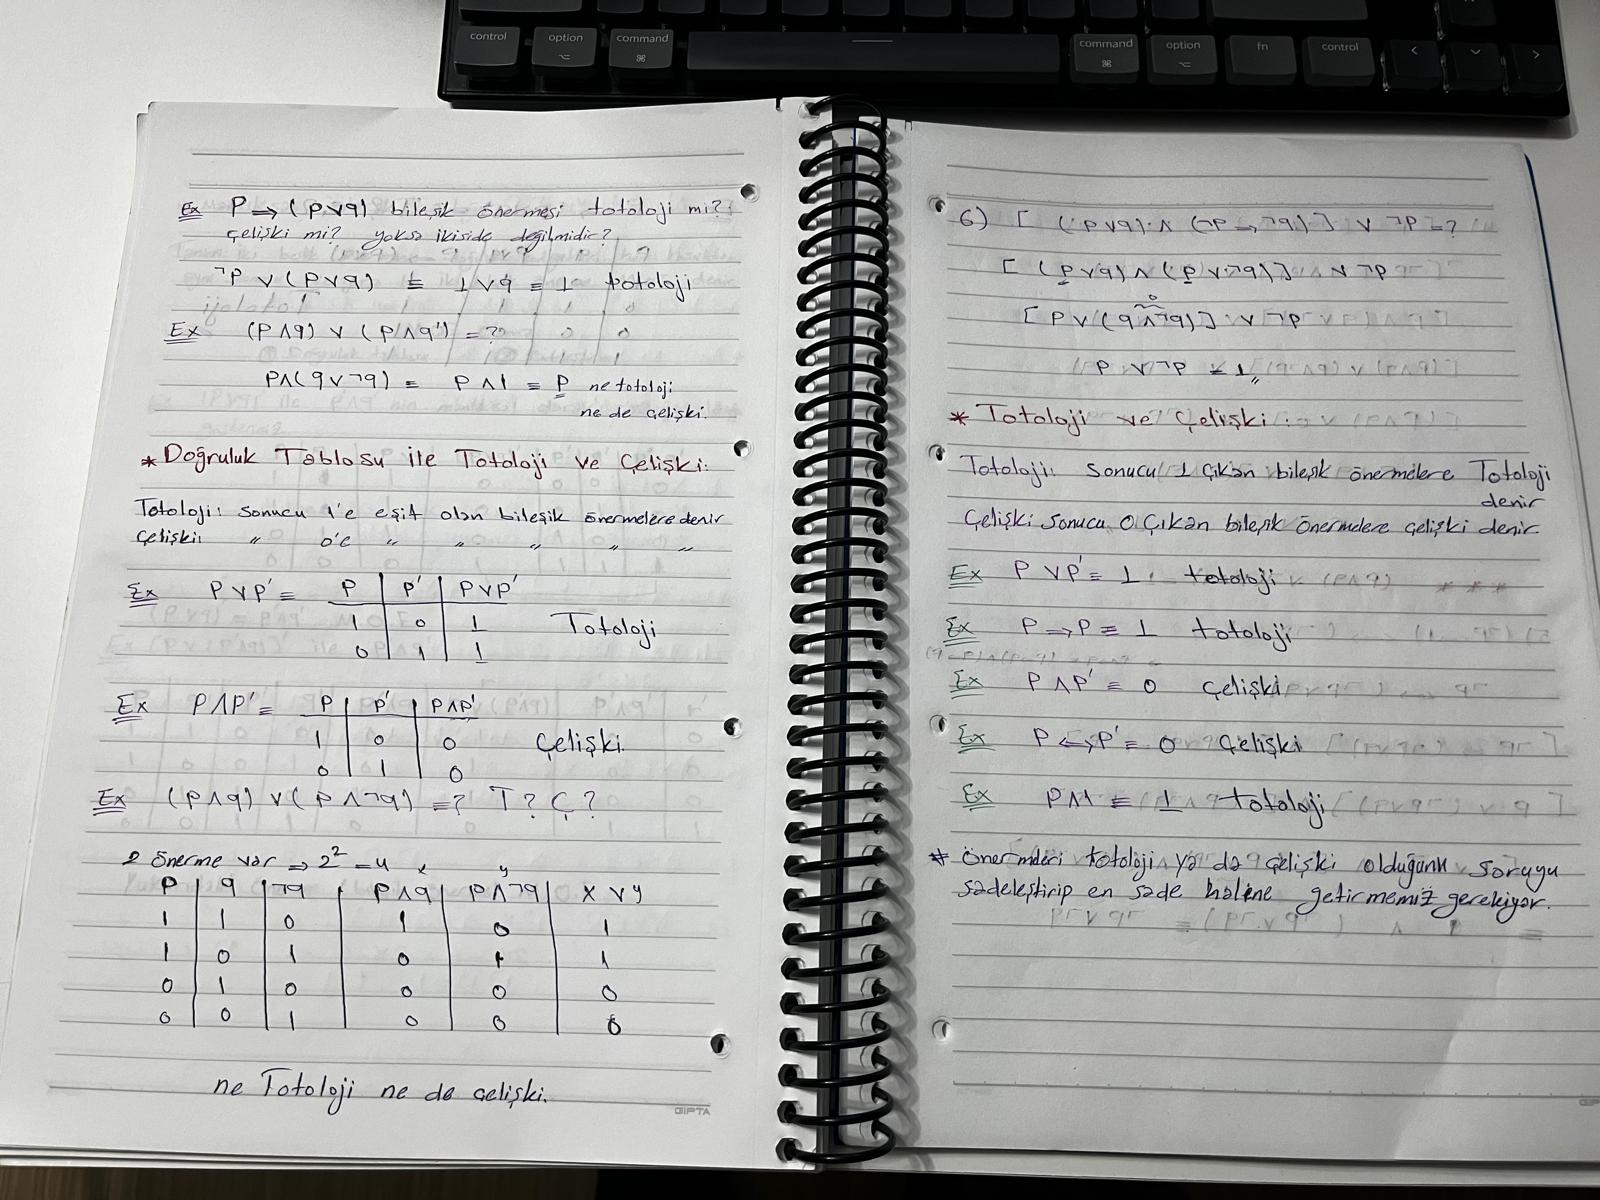 control
option
command
command
option
fn
control
Ex P ⇒ (p∨q) bileşik önermesi totoloji mi?
çelişki mi? yoksa ikiside değilmidir?
¬p ∨ (p∨q) ≡ 1 ∨ q ≡ 1 totoloji
Ex (p∧q) ∨ (p∧q') = ?
p∧(q∨¬q) ≡ p∧1 ≡ p ne totoloji
ne de çelişki.
* Doğruluk Tablosu ile Totoloji ve Çelişki:
Totoloji: sonucu 1'e eşit olan bileşik önermelere denir
Çelişki: " 0'e " " " " "
Ex P∨P' ≡ P | P' | P∨P'
1 | 0 | 1 Totoloji
0 | 1 | 1
Ex P∧P' ≡ P | P' | P∧P'
1 | 0 | 0 Çelişki.
0 | 1 | 0
Ex (p∧q) ∨ (p∧¬q) ≡? T? Ç?
2 önerme var ⇒ 2² = 4 x y
P | q | ¬q | P∧q | P∧¬q | x∨y
1 | 1 | 0 | 1 | 0 | 1
1 | 0 | 1 | 0 | 1 | 1
0 | 1 | 0 | 0 | 0 | 0
0 | 0 | 1 | 0 | 0 | 0
ne Totoloji ne de çelişki.
GIPTA
6) [ (p∨q) ∧ (¬p ⇒ ¬q) ] ∨ ¬p = ?
[ (p∨q) ∧ (p∨¬q) ] ∨ ¬p
0
[ p∨(q∧¬q) ] ∨ ¬p
p ∨ ¬p ≡ 1
* Totoloji ve Çelişki:
Totoloji: sonucu 1 çıkan bileşik önermelere Totoloji
denir
Çelişki sonucu 0 çıkan bileşik önermelere çelişki denir
Ex P∨P' ≡ 1 totoloji
Ex P ⇒ P ≡ 1 totoloji
Ex P∧P' ≡ 0 çelişki
Ex P ⇔ P' ≡ 0 çelişki
Ex P∧1 ≡ 1 totoloji
* önermeleri totoloji ya da çelişki olduğunu soruyu
sadeleştirip en sade haline getirmemiz gerekiyor.